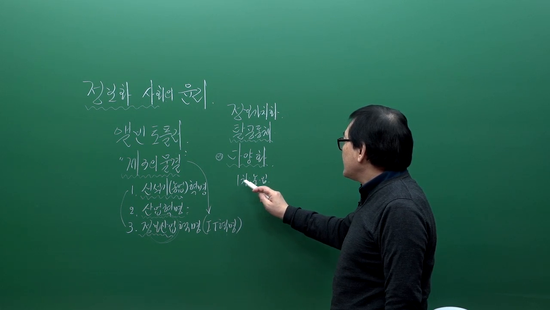 정보화 사회의 윤리.
앨빈 토플러.
"제3의 물결"
1. 신석기(농)혁명
2. 산업혁명.
3. 정보산업혁명(IT혁명)
정보가치화.
탈공통체
다양화.